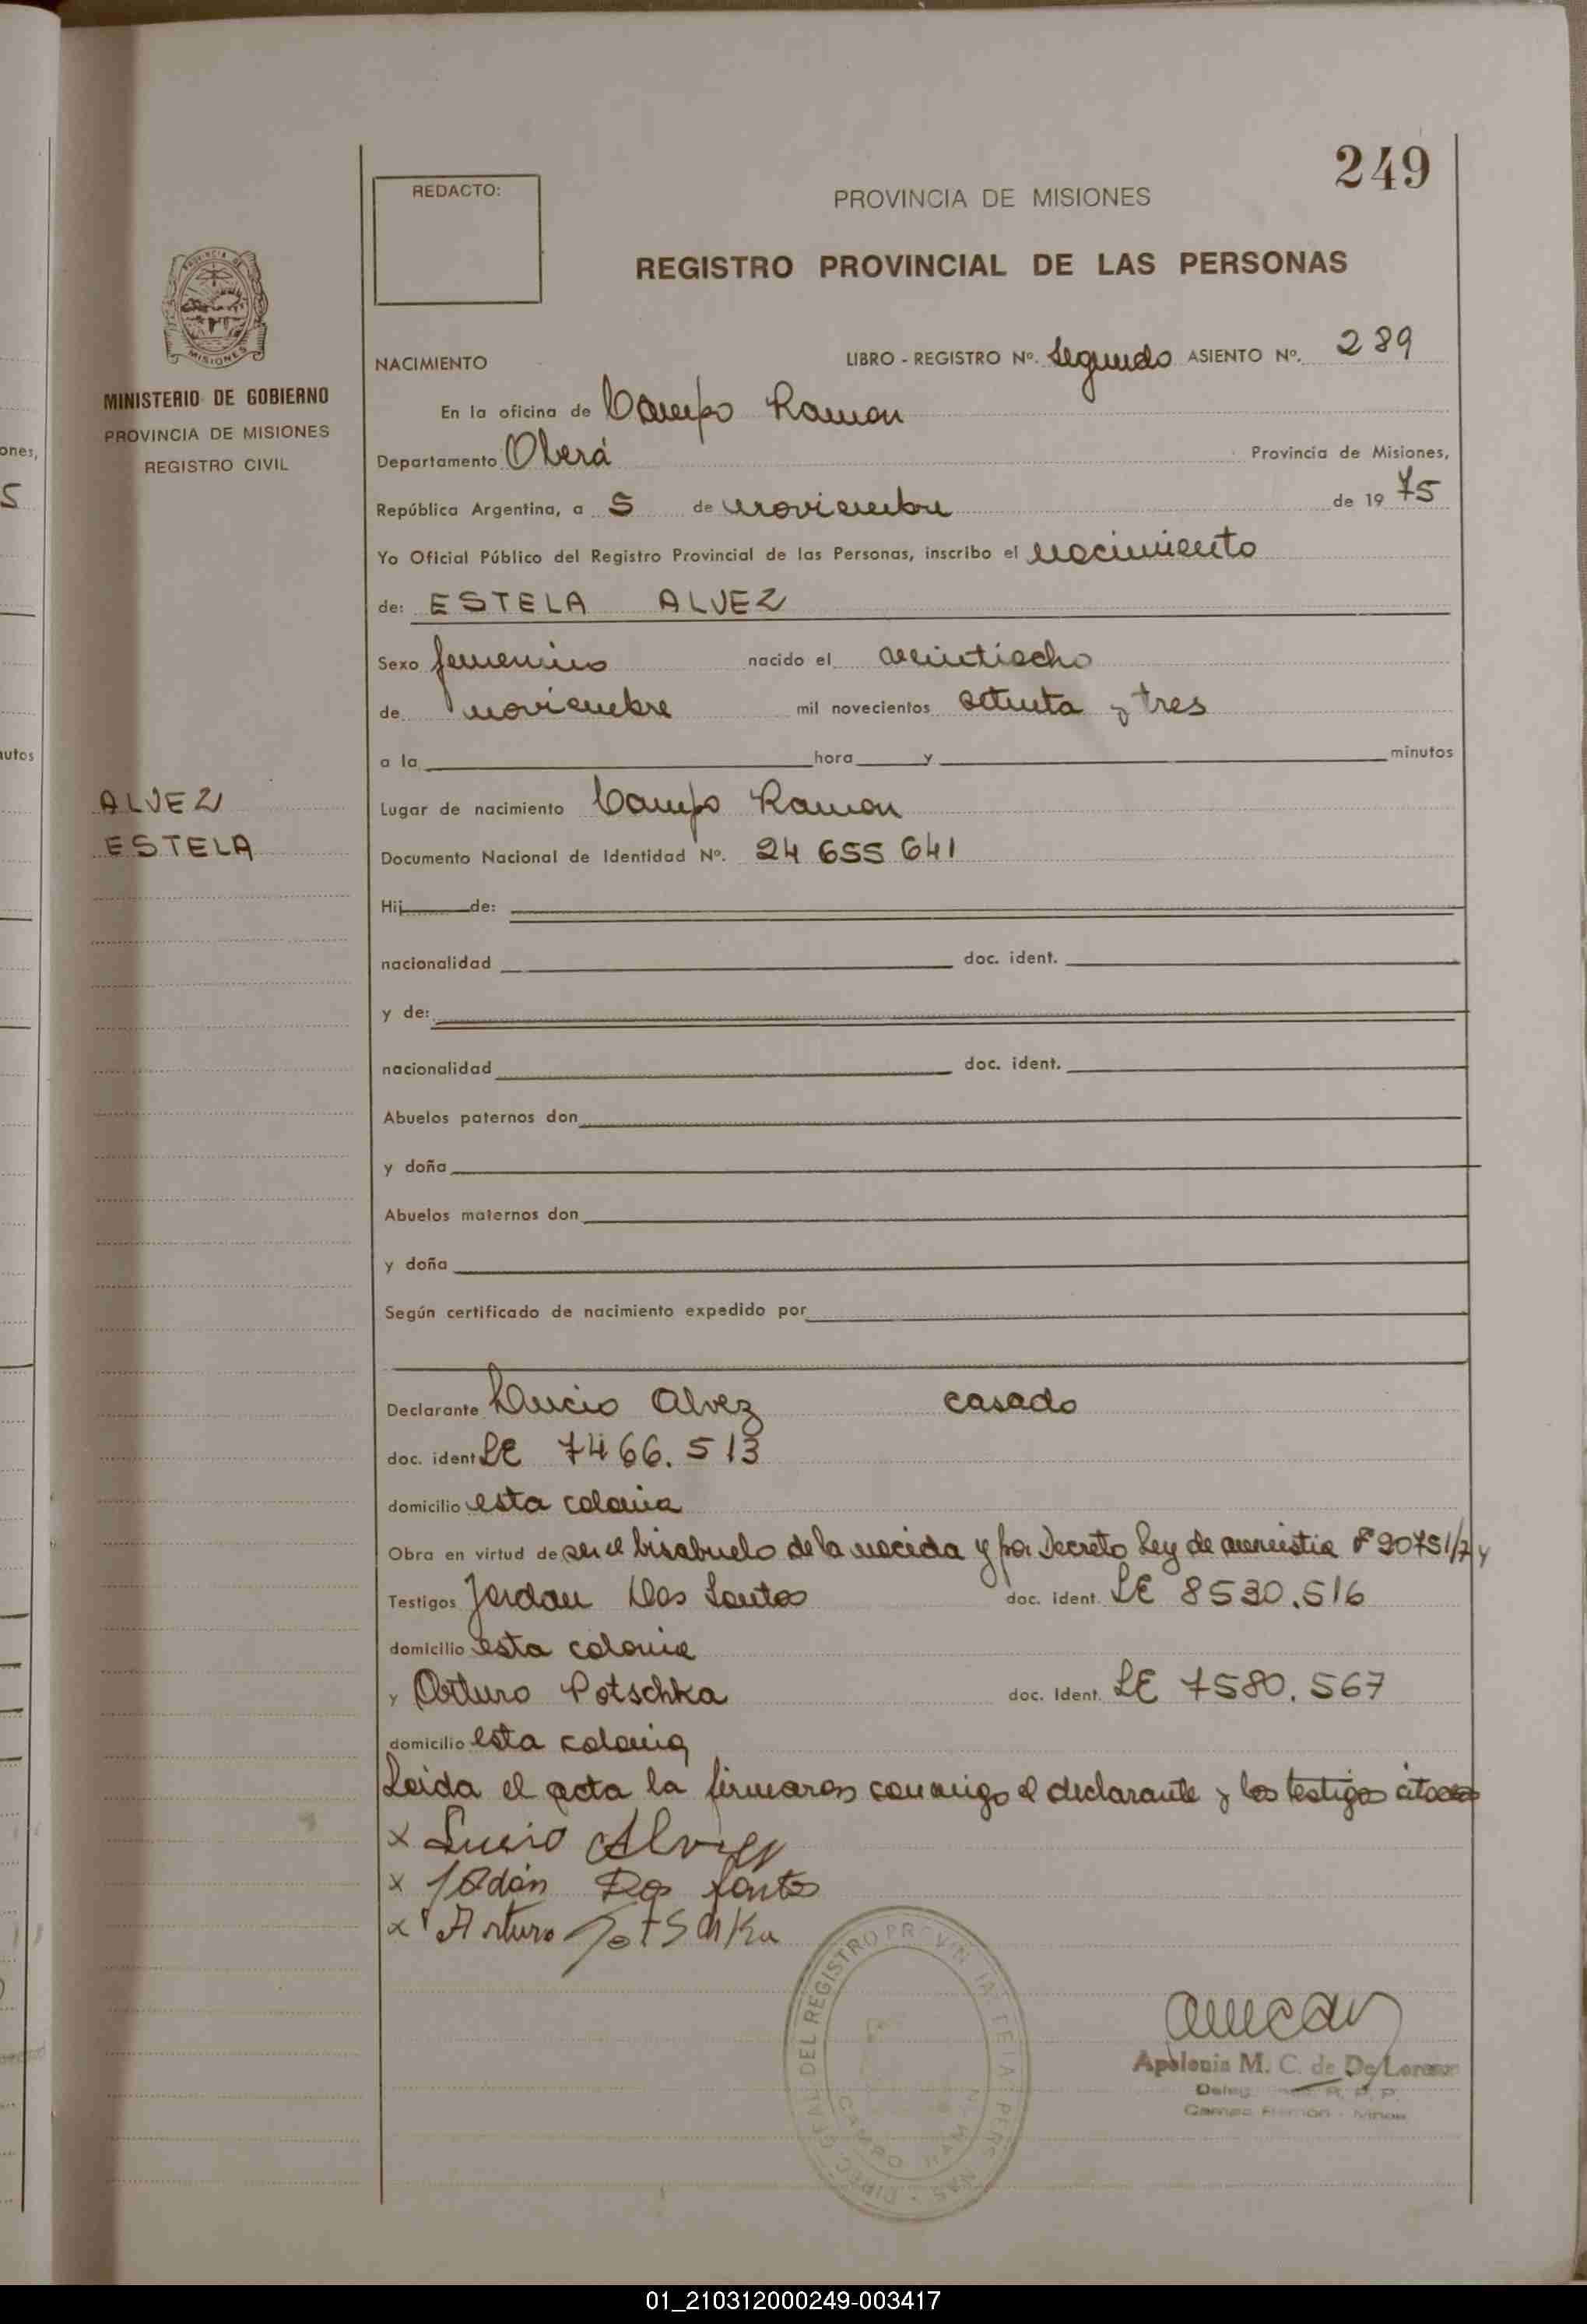 249
REDACTO:
PROVINCIA DE MISIONES
REGISTRO PROVINCIAL DE LAS PERSONAS
MISIONES
MINISTERIO DE GOBIERNO
PROVINCIA DE MISIONES
REGISTRO CIVIL
NACIMIENTO LIBRO - REGISTRO Nº. Segundo ASIENTO Nº. 289
En la oficina de Campo Ramon
Departamento Oberá Provincia de Misiones,
República Argentina, a 5 de noviembre de 1975
Yo Oficial Público del Registro Provincial de las Personas, inscribo el nacimiento
de: ESTELA ALVEZ
Sexo femenino nacido el veintiocho
de noviembre mil novecientos setenta y tres
a la hora y minutos
ALVEZ
ESTELA
Lugar de nacimiento Campo Ramon
Documento Nacional de Identidad Nº. 24 655 641
Hij de:
nacionalidad doc. ident.
y de:
nacionalidad doc. ident.
Abuelos paternos don
y doña
Abuelos maternos don
y doña
Según certificado de nacimiento expedido por
Declarante Lucio Alvez casado
doc. ident LE 7466.513
domicilio esta colonia
Obra en virtud de ser el bisabuelo de la nacida y por Decreto Ley de amnistia 20751/7
Testigos Jordan Dos Santos doc. ident. LE 8530.516
domicilio esta colonia
y Arturo Potschka doc. Ident. LE 7580.567
domicilio esta colonia
Leida el acta la firmaron conmigo el declarante y los testigos citados
x Lucio Alvez
x Jordán Dos Santos
x Arturo Potschka
DIREC. GRAL DEL REGISTRO PROVINCIAL DE LAS PERSONAS
CAMPO RAMON
Apolonia M. C. de De Lorenzo
R. P. P.
Campo Ramón - Mnes
01_210312000249-003417
ones,
5
utos